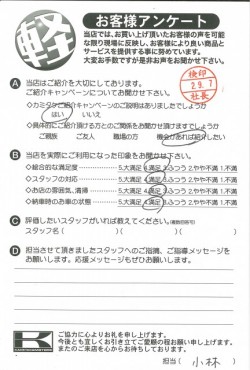 軽
お客様アンケート
当店では、お買い上げ頂いたお客様の声を可能
な限り現場に反映し、お客様により良い商品と
サービスを提供する事に努めています。
大変お手数ですが是非お声をお聞かせ下さい。
A 当店はご紹介を大切にしております。
ご紹介キャンペーンについてお聞かせ下さい。
検印
29.7
社長
◇カミタケご紹介キャンペーンのご説明はありましたでしょうか
はい いいえ
◇具体的にご紹介頂ける方とのご関係をお聞かせ頂けますでしょうか
ご親族 ご友人 職場の方 機会があれば紹介したい
B 当店を実際にご利用になった印象をお聞かせ下さい。
◇総合的な満足度 5.大満足 4.満足 3.ふつう 2.やや不満 1.不満
◇スタッフの対応 5.大満足 4.満足 3.ふつう 2.やや不満 1.不満
◇お店の雰囲気、清掃 5.大満足 4.満足 3.ふつう 2.やや不満 1.不満
◇納車時のお車の状態 5.大満足 4.満足 3.ふつう 2.やや不満 1.不満
C 評価したいスタッフがいれば教えてください。(複数回答可)
スタッフ名( )( )( )
D 担当させて頂きましたスタッフへのご指摘、ご指導メッセージを
お願いします。応援メッセージもぜひお願いします。
K
ご協力に心よりお礼を申し上げます。
今後とも宜しくお引き立てご愛顧の程お願い申し上げます。
またのご来店を心からお待ちしております。
担当( 小林 )